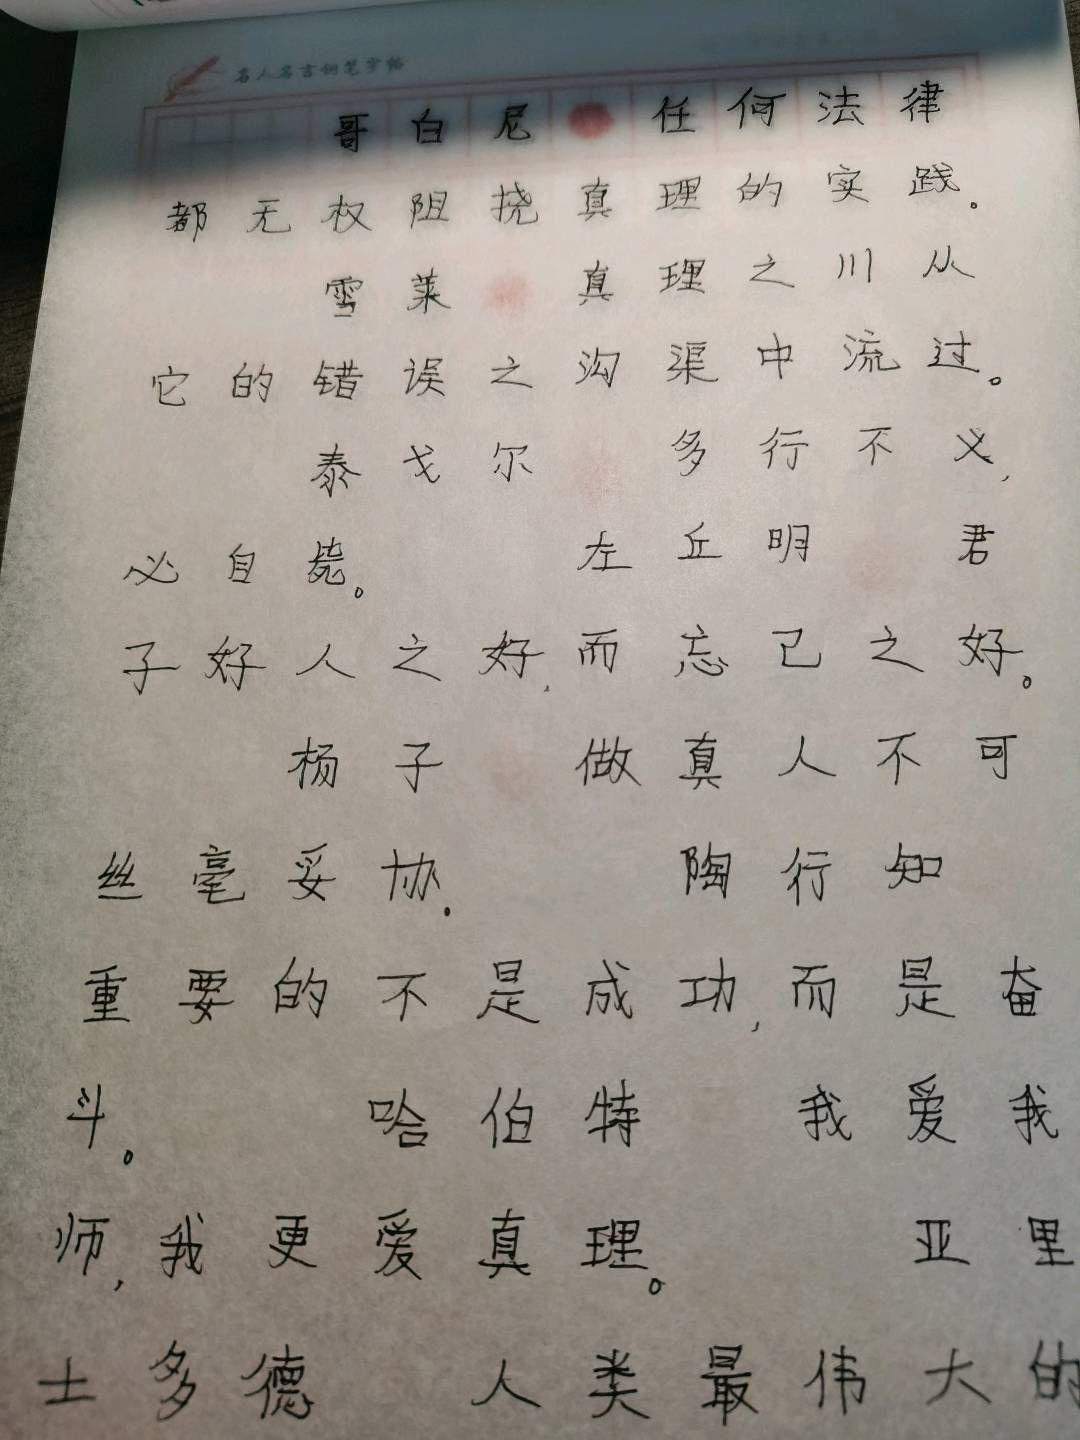 名人名言钢笔字帖
哥白尼 任何法律
都无权阻挠真理的实践。
雪莱 真理之川从
它的错误之沟渠中流过。
泰戈尔 多行不义,
必自毙。 左丘明 君
子好人之好,而忘己之好。
杨子 做真人不可
丝毫妥协。 陶行知
重要的不是成功,而是奋
斗。 哈伯特 我爱我
师,我更爱真理。 亚里
士多德 人类最伟大的